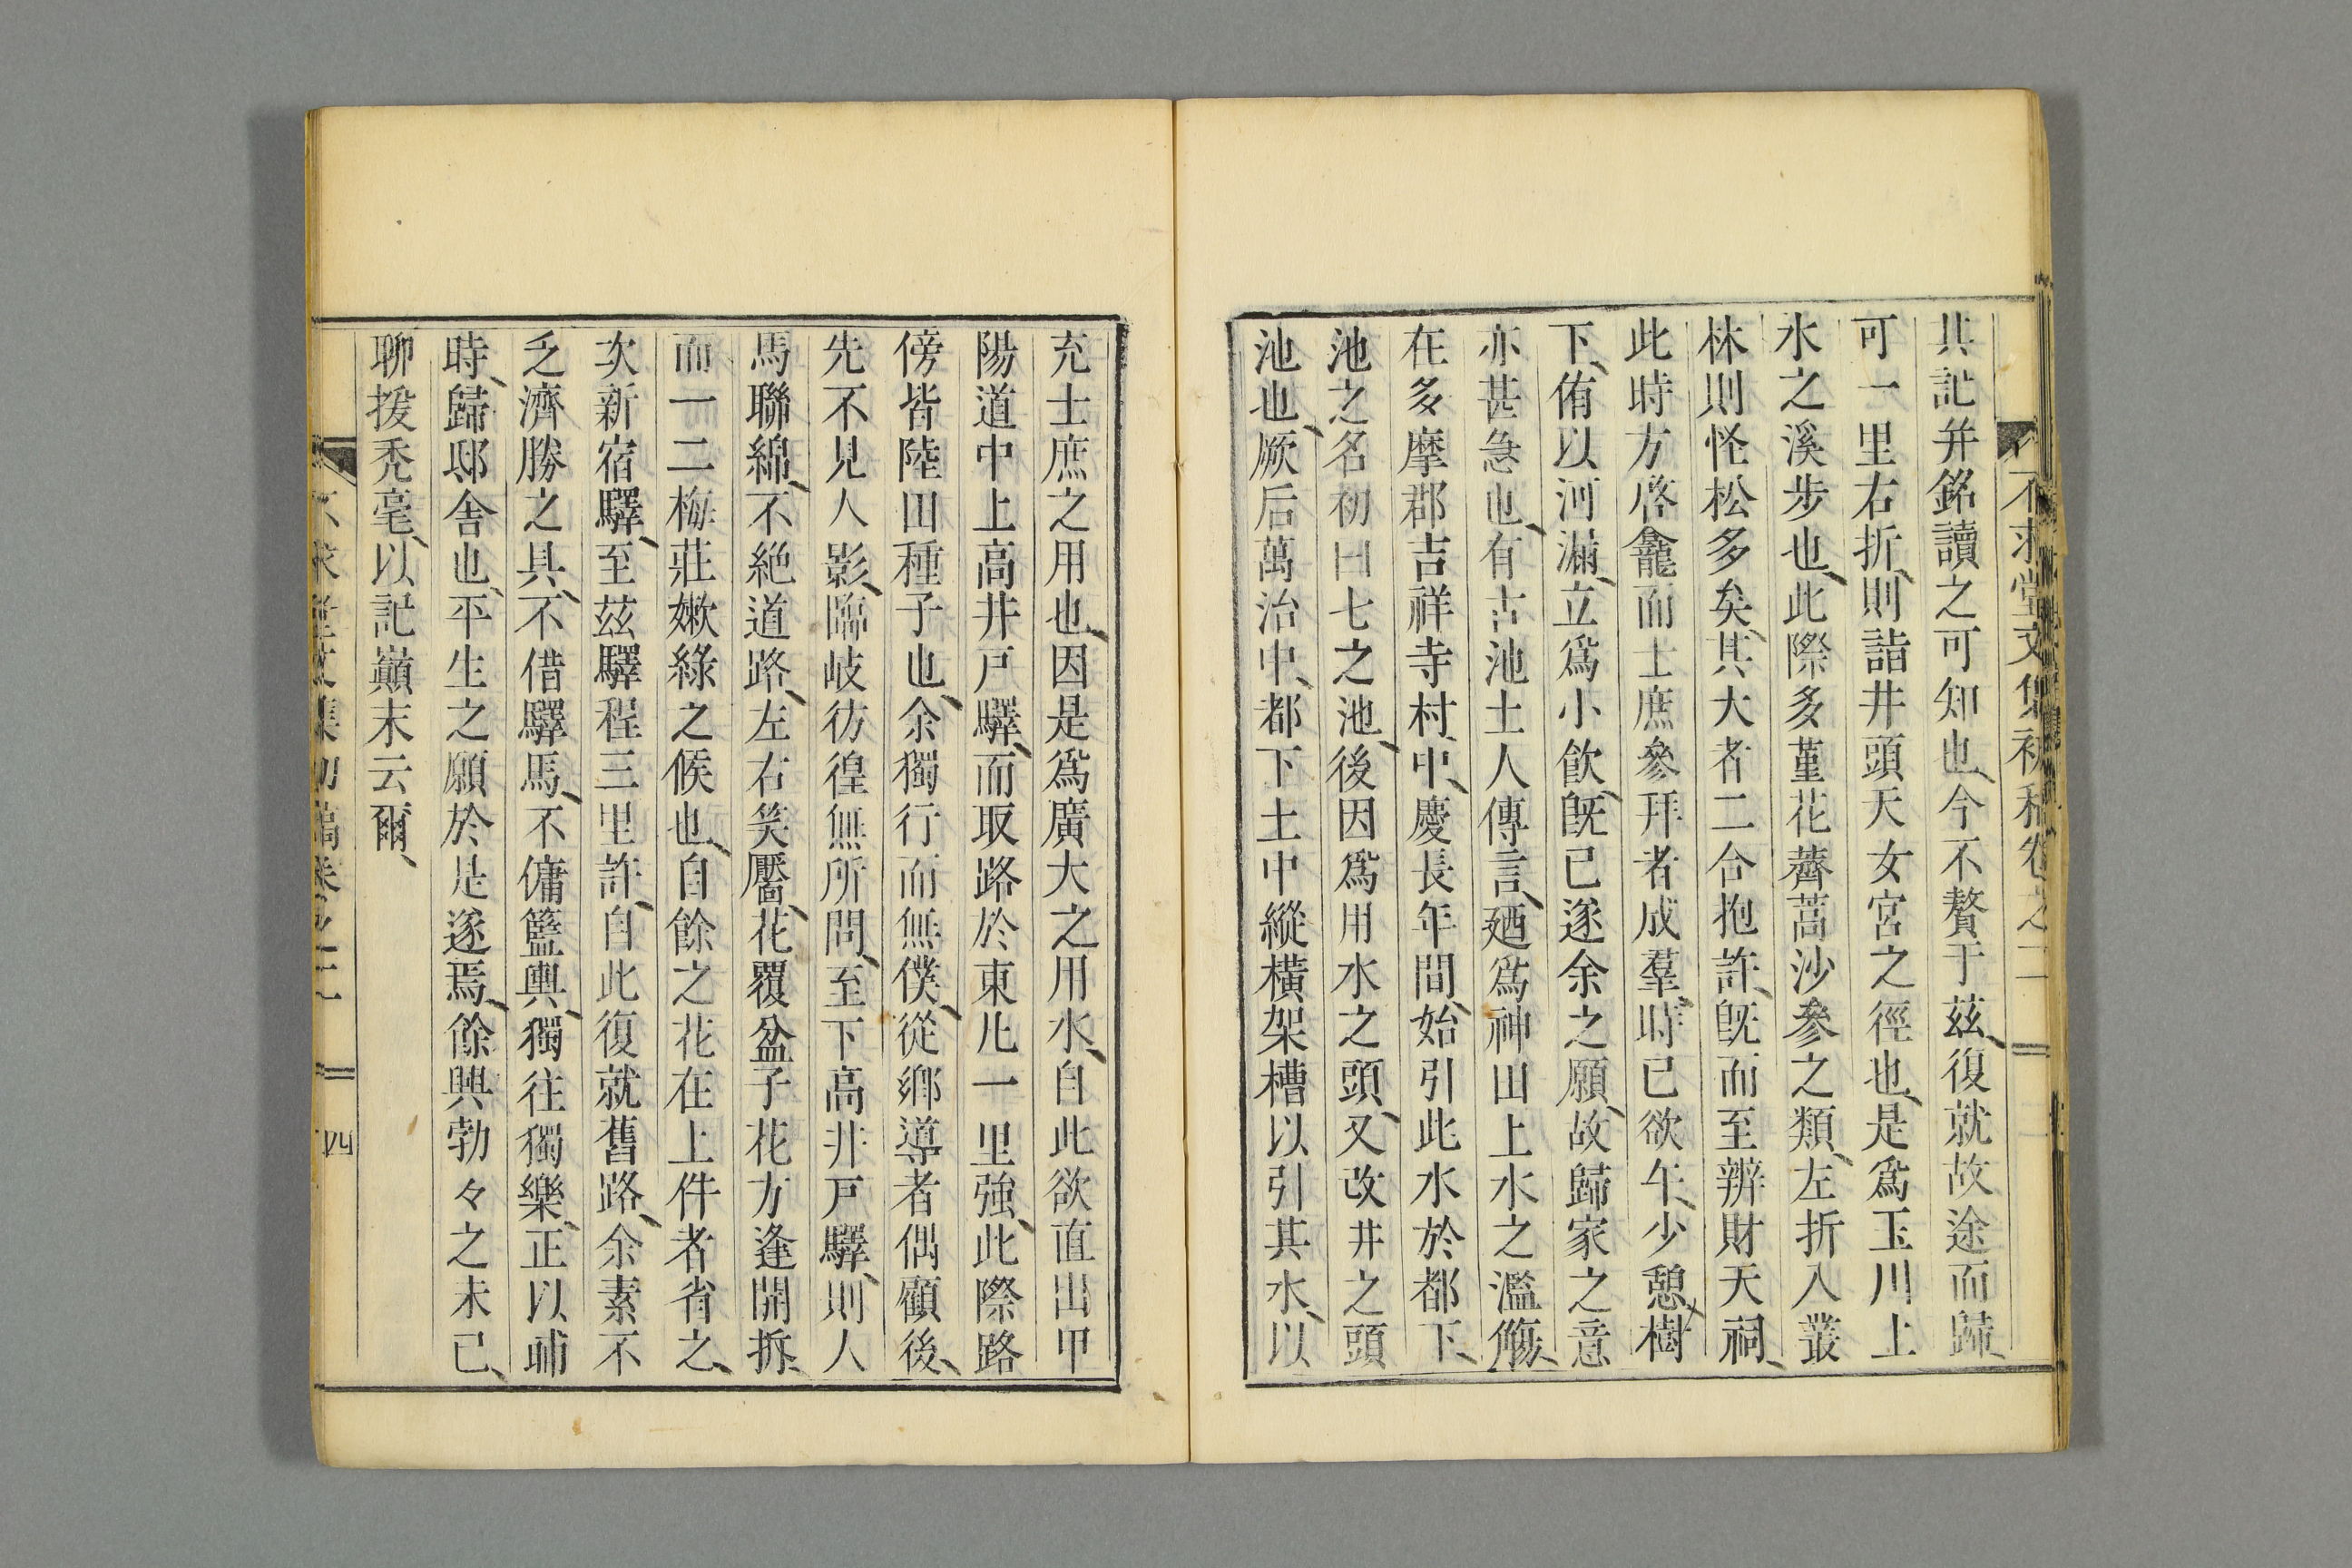 不求堂文集初稿卷之二
其記并銘讀之可知也、今不贅于茲、復就故途而歸、
可一里右折、則詣井頭天女宮之徑也、是爲玉川上
水之溪步也、此際多菫花薺蒿沙參之類、左折入叢
林則怪松多矣、其大者二合抱許、既而至辨財天祠、
此時方啓龕而士庶參拜者成羣、時已欲午、少憩樹
下、侑以河漏、立爲小飲、既已遂余之願、故歸家之意
亦甚急也、有古池土人傳言、廼爲神田上水之濫觴、
在多摩郡吉祥寺村中、慶長年間、始引此水於都下、
池之名初曰七之池、後因爲用水之頭、又改井之頭
池也、厥后萬治中、都下土中縱橫架槽以引其水、以
充士庶之用也、因是爲廣大之用水、自此欲直出甲
陽道中上高井戸驛、而取路於東北一里強、此際路
傍皆陸田種子也、余獨行而無僕、從鄉導者偶顧後、
先不見人影、臨岐彷徨無所問、至下高井戸驛、則人
馬聯綿、不絕道路、左右笑靨、花覆盆子花方逢開拆、
而一二梅莊嫩綠之候也、自餘之花在上件者省之、
次新宿驛、至茲驛程三里許、自此復就舊路、余素不
乏濟勝之具、不借驛馬、不傭籃輿、獨往獨樂、正以晡
時、歸邸舍也、平生之願於是遂焉、餘興勃々之未已、
聊援禿毫、以記巔末云爾、
不求堂文集初稿卷之二
四